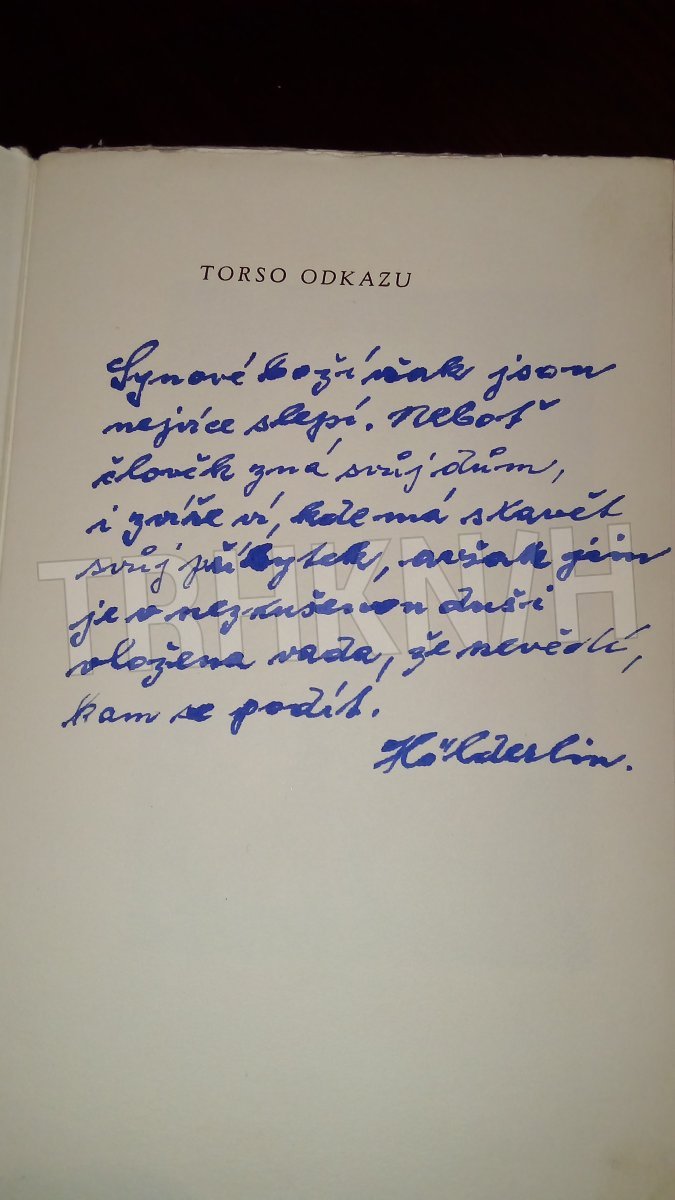 TORSO ODKAZU
Synové boží však jsou
nejvíce slepí. Neboť
člověk zná svůj dům,
i zvíře ví, kde má stavět
svůj příbytek, avšak jim
je v nezkušenou duši
vložena vada, že nevědí,
kam se podít.
Hölderlin.
TBHKN/H